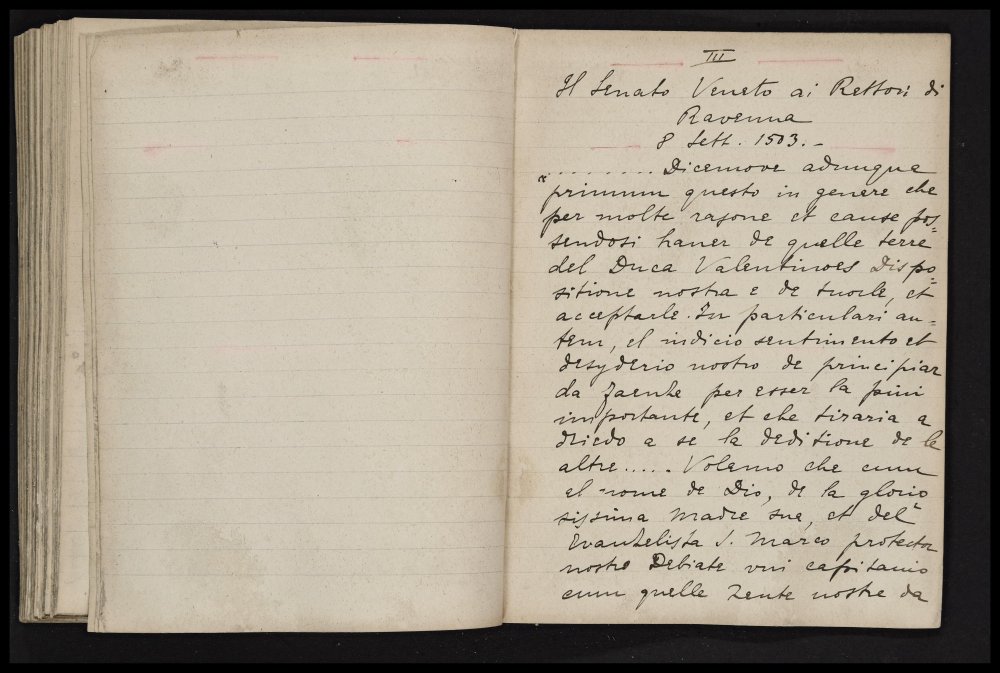 III
Il Senato Veneto ai Rettori di
Ravenna
8 Sett. 1503.-
"........ Dicemove adunque
primum questo in genere che
per molte rasone et cause pos=
sendosi haver de quelle terre
del Duca Valentinoes dispo=
sitione nostra e de tuorle, et
acceptarle. In particulari au=
tem, el indicio sentimento et
desyderio nostro de principiar
da Faenhe per esser la piui
importante, et che tiraria a
driedo a se la deditione de le
altre..... Volemo che cum
el nome de Dio, de la glorio=
sissima Madre sua, et del
Evanhelista S. Marco protector
nostro Debiate vui capitanio
cum quelle zente nostre da